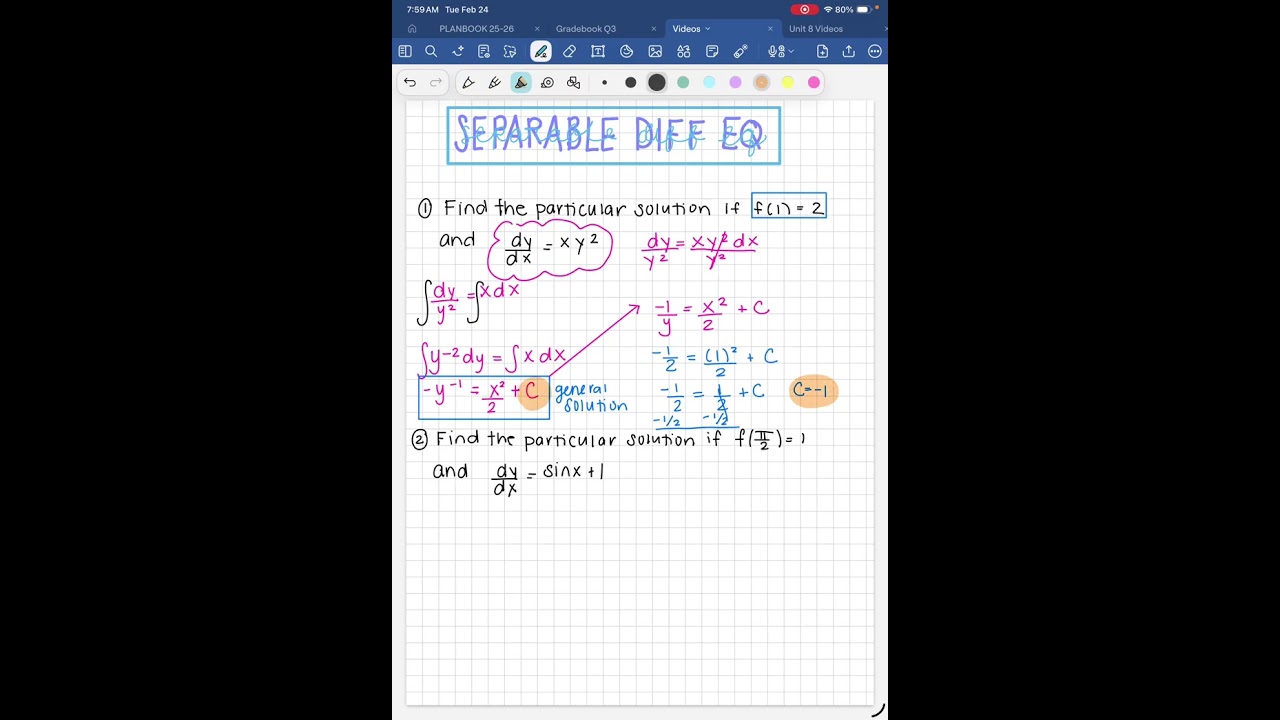 7:59 AM Tue Feb 24
80%
PLANBOOK 25-26
Gradebook Q3
Videos
Unit 8 Videos
SEPARABLE DIFF EQ
separable diff eq
① Find the particular solution if f(1) = 2
and dy/dx = xy²
dy/y² = xy²dx/y²
∫dy/y² = ∫xdx
-1/y = x²/2 + C
∫y-²dy = ∫xdx
-1/2 = (1)²/2 + C
-y⁻¹ = x²/2 + C general solution
-1/2 = 1/2 + C C=-1
-1/2 -1/2
② Find the particular solution if f(π/2) = 1
and dy/dx = sinx + 1